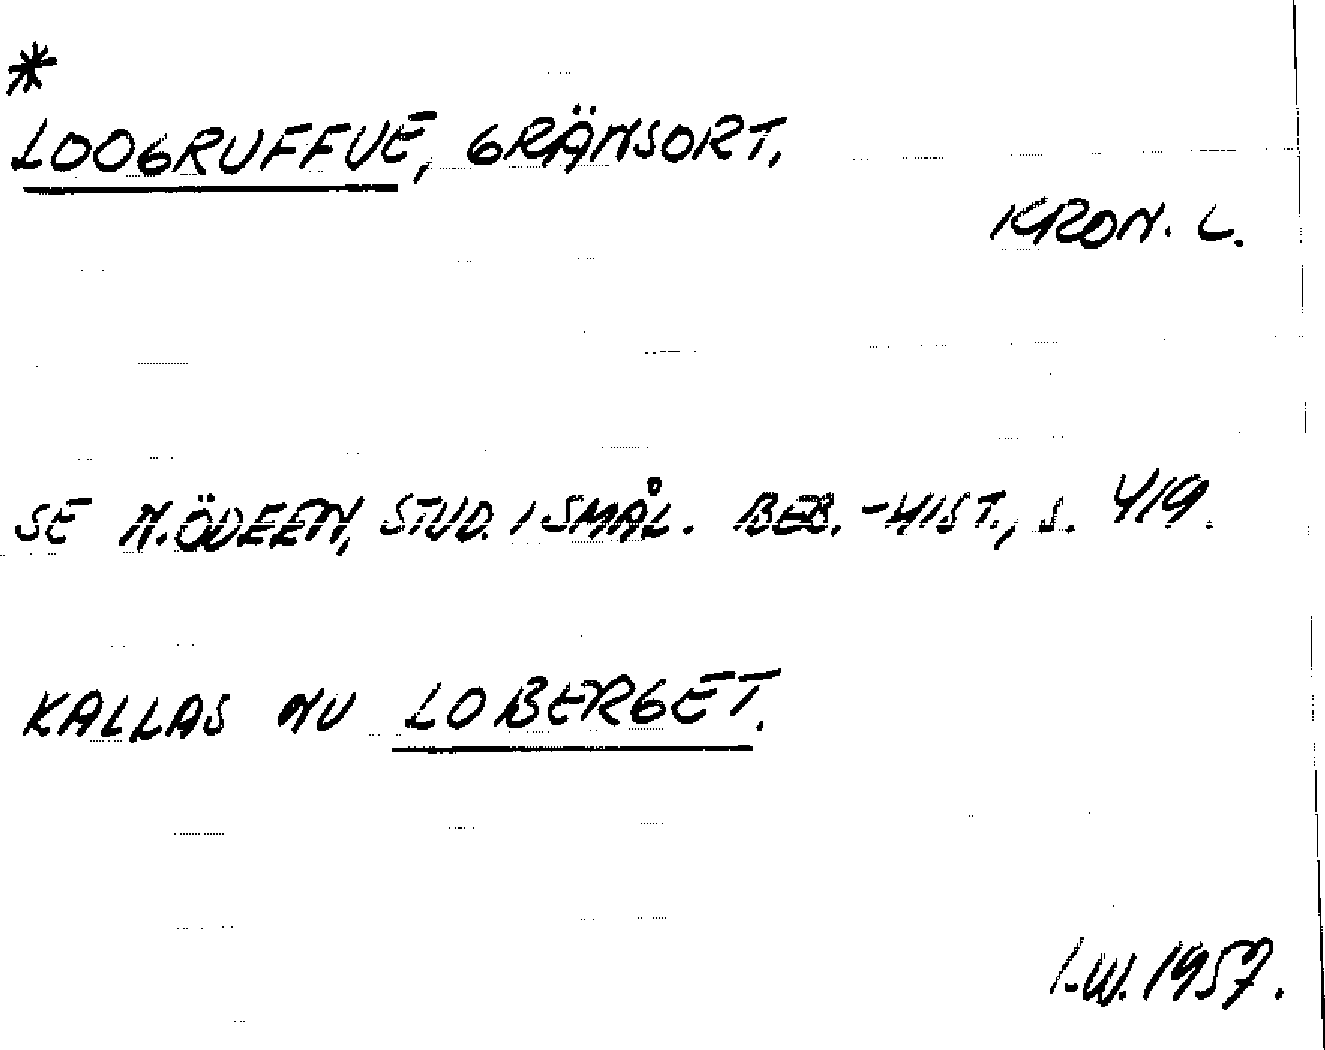 *
LOOGRUFFUE, GRÄNSORT,
KRON. L.
SE N. ÖDEEN, STUD. I SMÅL. BEB.-HIST., S. 419.
KALLAS NU LOBERGET.
I.W. 1957.